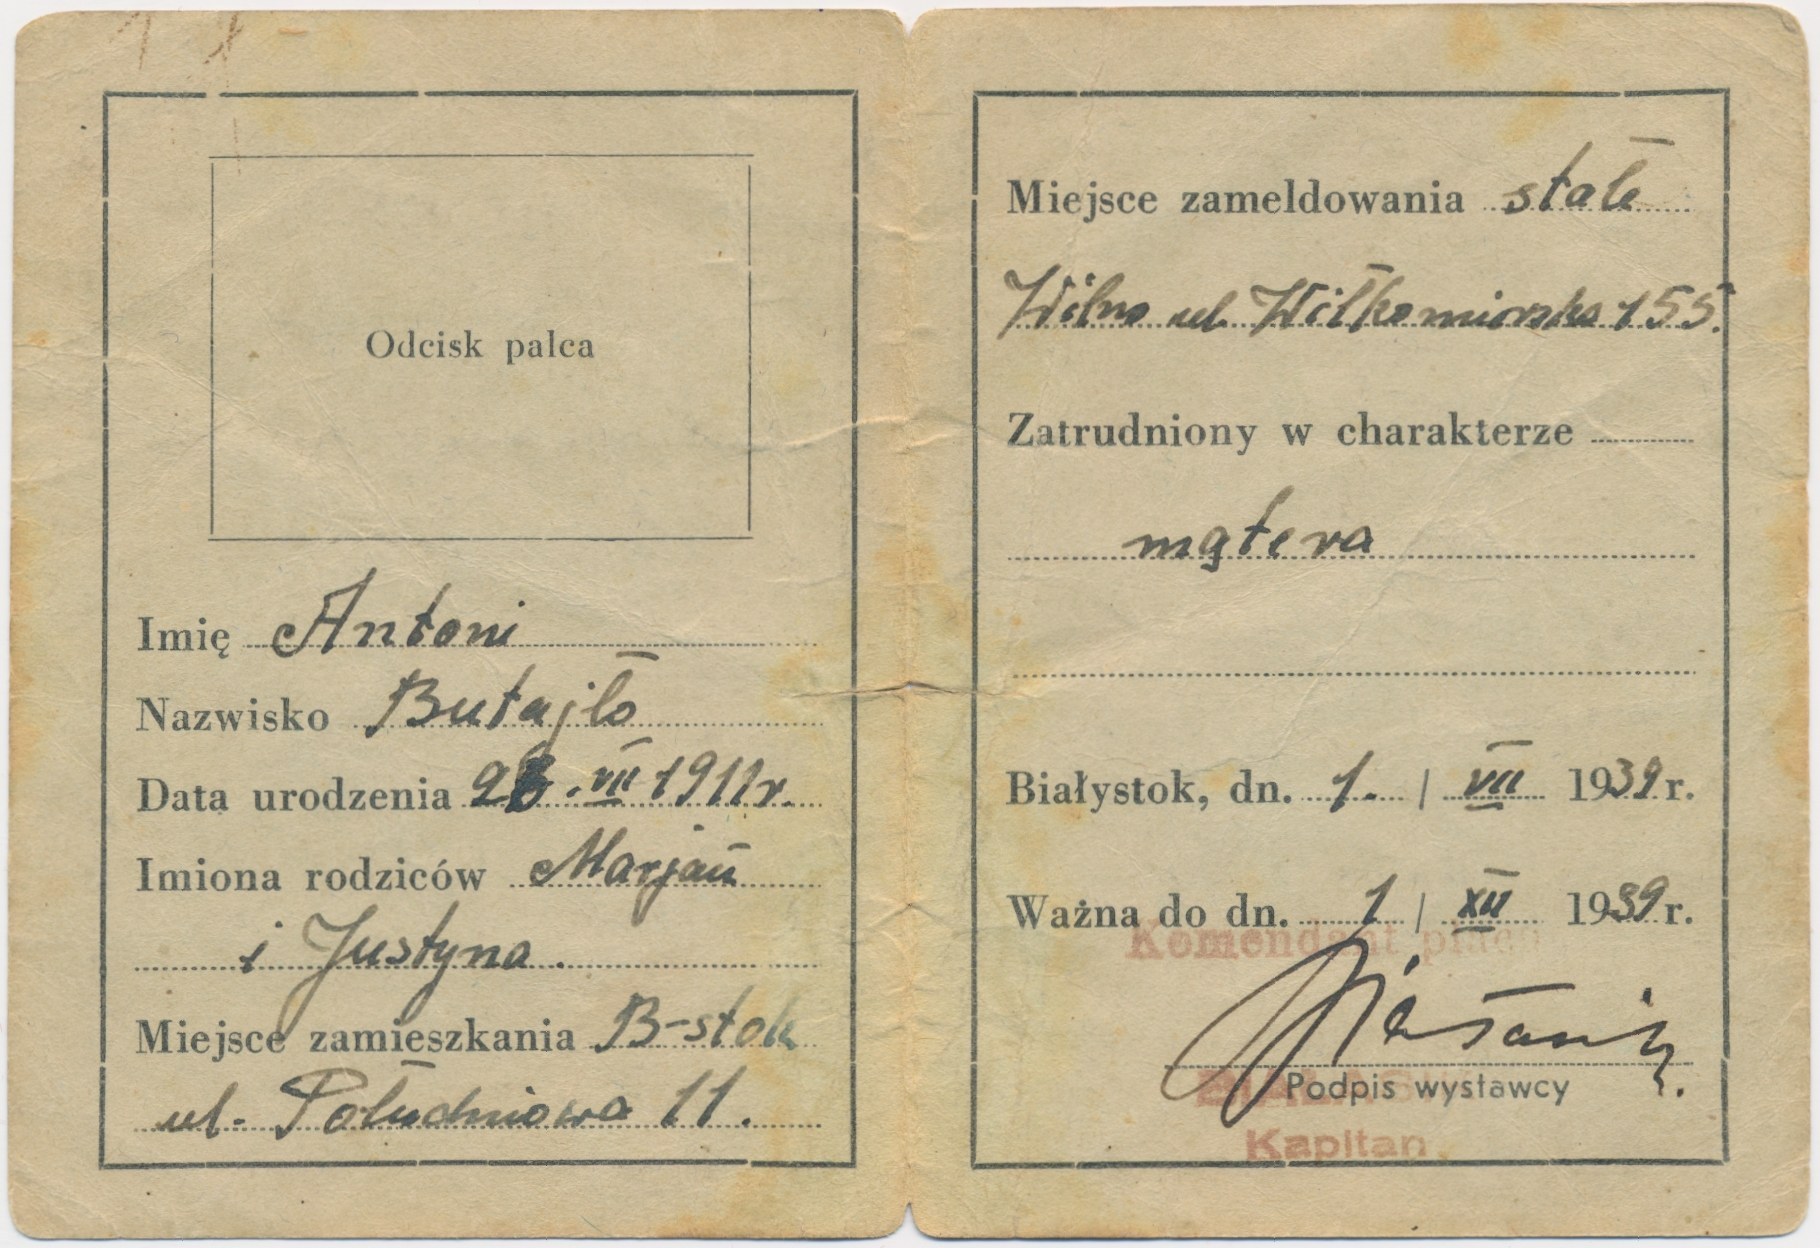 Odcisk palca
Imię Antoni
Nazwisko Butajło
Data urodzenia .VII 1911 r.
Imiona rodziców Marjan
i Justyna.
Miejsce zamieszkania B-stok
ul. Południowa 11.
Miejsce zameldowania stałe
Wilno ul. Wiłkomirska 155.
Zatrudniony w charakterze
Białystok, dn. 1. / VII 1939 r.
Ważna do dn. 1 / XII 1939 r.
Komendant
Podpis wystawcy
Kapitan